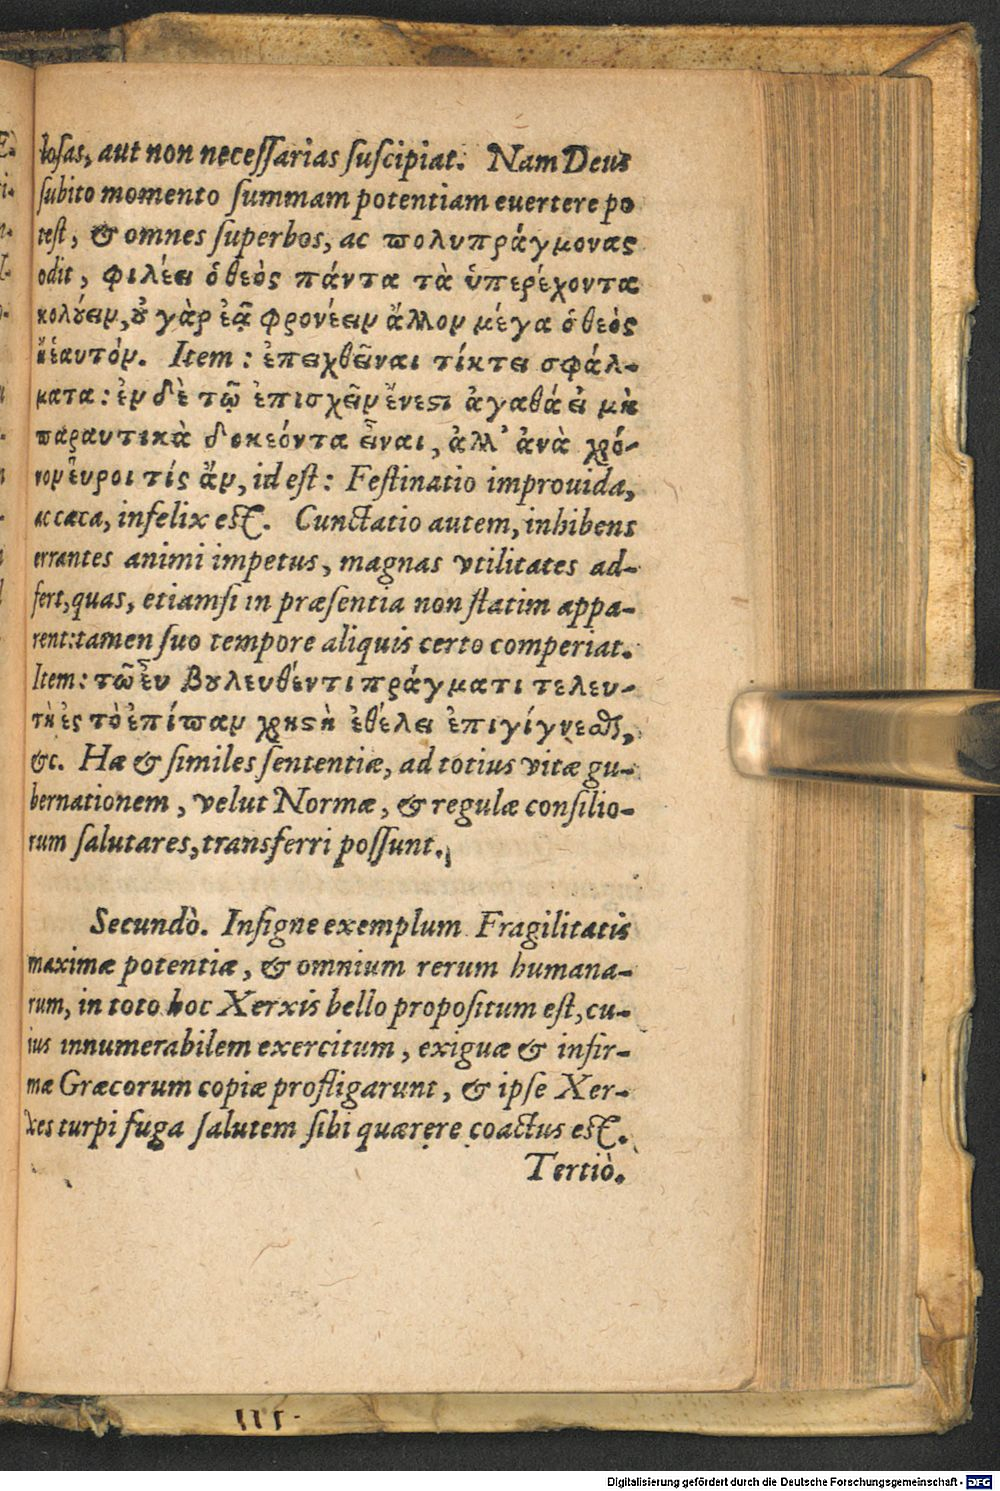 losas, aut non necessarias suscipiat. Nam Deus
subito momento summam potentiam euertere po
test, & omnes superbos, ac πολυπράγμονας
odit, φιλέει ὁ θεὸς πάντα τὰ ὑπερέχοντα
κολούειν, οὐ γὰρ ἐᾷ φρονέειν ἄλλον μέγα ὁ θεὸς
ἢ ἑαυτόν. Item: ἐπειχθῆναι τίκτει σφάλ-
ματα: ἐν δὲ τῷ ἐπισχεῖν ἔνεστι ἀγαθὰ εἰ μὴ
παραυτικὰ δοκέοντα εἶναι, ἀλλ' ἀνὰ χρό-
νον εὕροι τίς ἄν, id est: Festinatio improuida,
ac cæca, infelix est. Cunctatio autem, inhibens
errantes animi impetus, magnas vtilitates ad-
fert, quas, etiamsi in præsentia non statim appa-
rent: tamen suo tempore aliquis certo comperiat.
Item: τῷ εὖ βουλευθέντι πράγματι τελευ-
τὴ ἐς τὸ ἐπίπαν χρηστὴ ἐθέλει ἐπιγίγνεσθαι,
&c. Hæ & similes sententiæ, ad totius vitæ gu-
bernationem, velut Normæ, & regulæ consilio-
rum salutares, transferri possunt.
Secundò. Insigne exemplum Fragilitatis
maximæ potentiæ, & omnium rerum humana-
rum, in toto hoc Xerxis bello propositum est, cu-
ius innumerabilem exercitum, exiguæ & infir-
mæ Græcorum copiæ profligarunt, & ipse Xer-
xes turpi fuga salutem sibi quærere coactus est.
Tertiò.
Digitalisierung gefördert durch die Deutsche Forschungsgemeinschaft - DFG